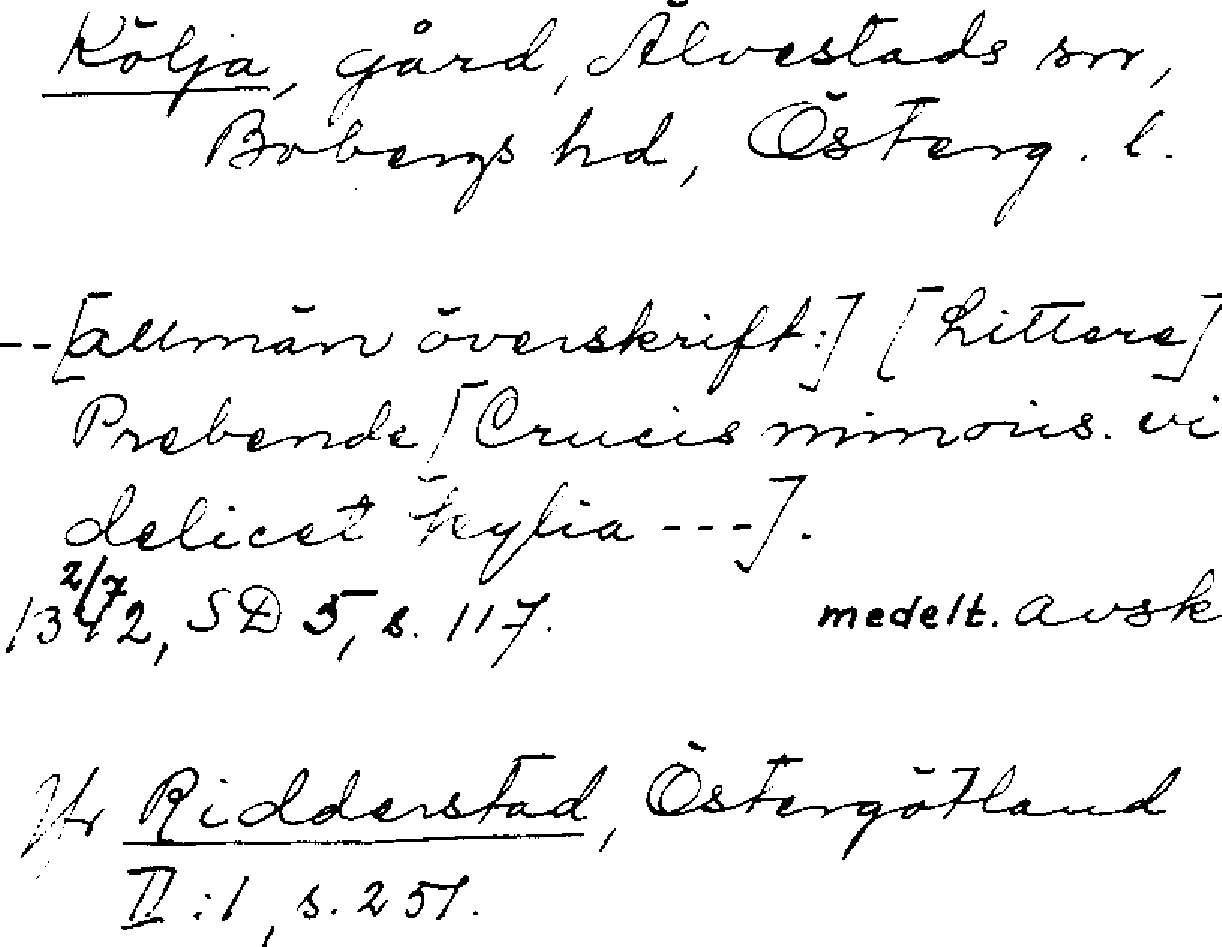 Kölja, gård, Älvestads sn,
Bobergs hd, Österg. l.
--[allmän överskrift:] [Littere]
Prebende [Crucis minoris. vi
delicet kylia ---].
2/7
1342, SD 5, s. 117. medelt. avsk
Jfr Ridderstad, Östergötland
II:1, s. 251.